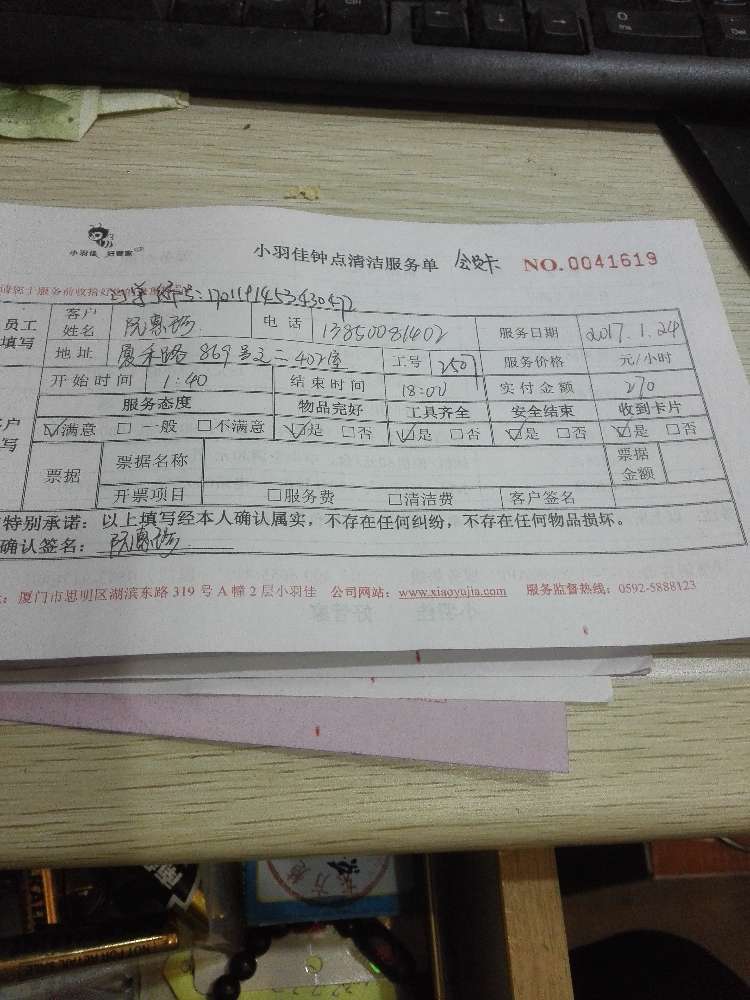 小羽佳 好管家
小羽佳钟点清洁服务单 会员卡 NO.0041619
订单编号:1701191453430472
员工填写 客户姓名 阮惠 电话 13850081402 服务日期 2017.1.24
地址 厦禾路869号之二402室 工号 2507 服务价格 元/小时
开始时间 1:40 结束时间 18:00 实付金额 270
服务态度 物品完好 工具齐全 安全结束 收到卡片
☑满意 □一般 □不满意 ☑是 □否 ☑是 □否 ☑是 □否 ☑是 □否
票据 票据名称 票据金额
开票项目 □服务费 □清洁费 客户签名
特别承诺：以上填写经本人确认属实，不存在任何纠纷，不存在任何物品损坏。
确认签名：阮惠
厦门市思明区湖滨东路319号A幢2层小羽佳 公司网站：www.xiaoyujia.com 服务监督热线：0592-5888123